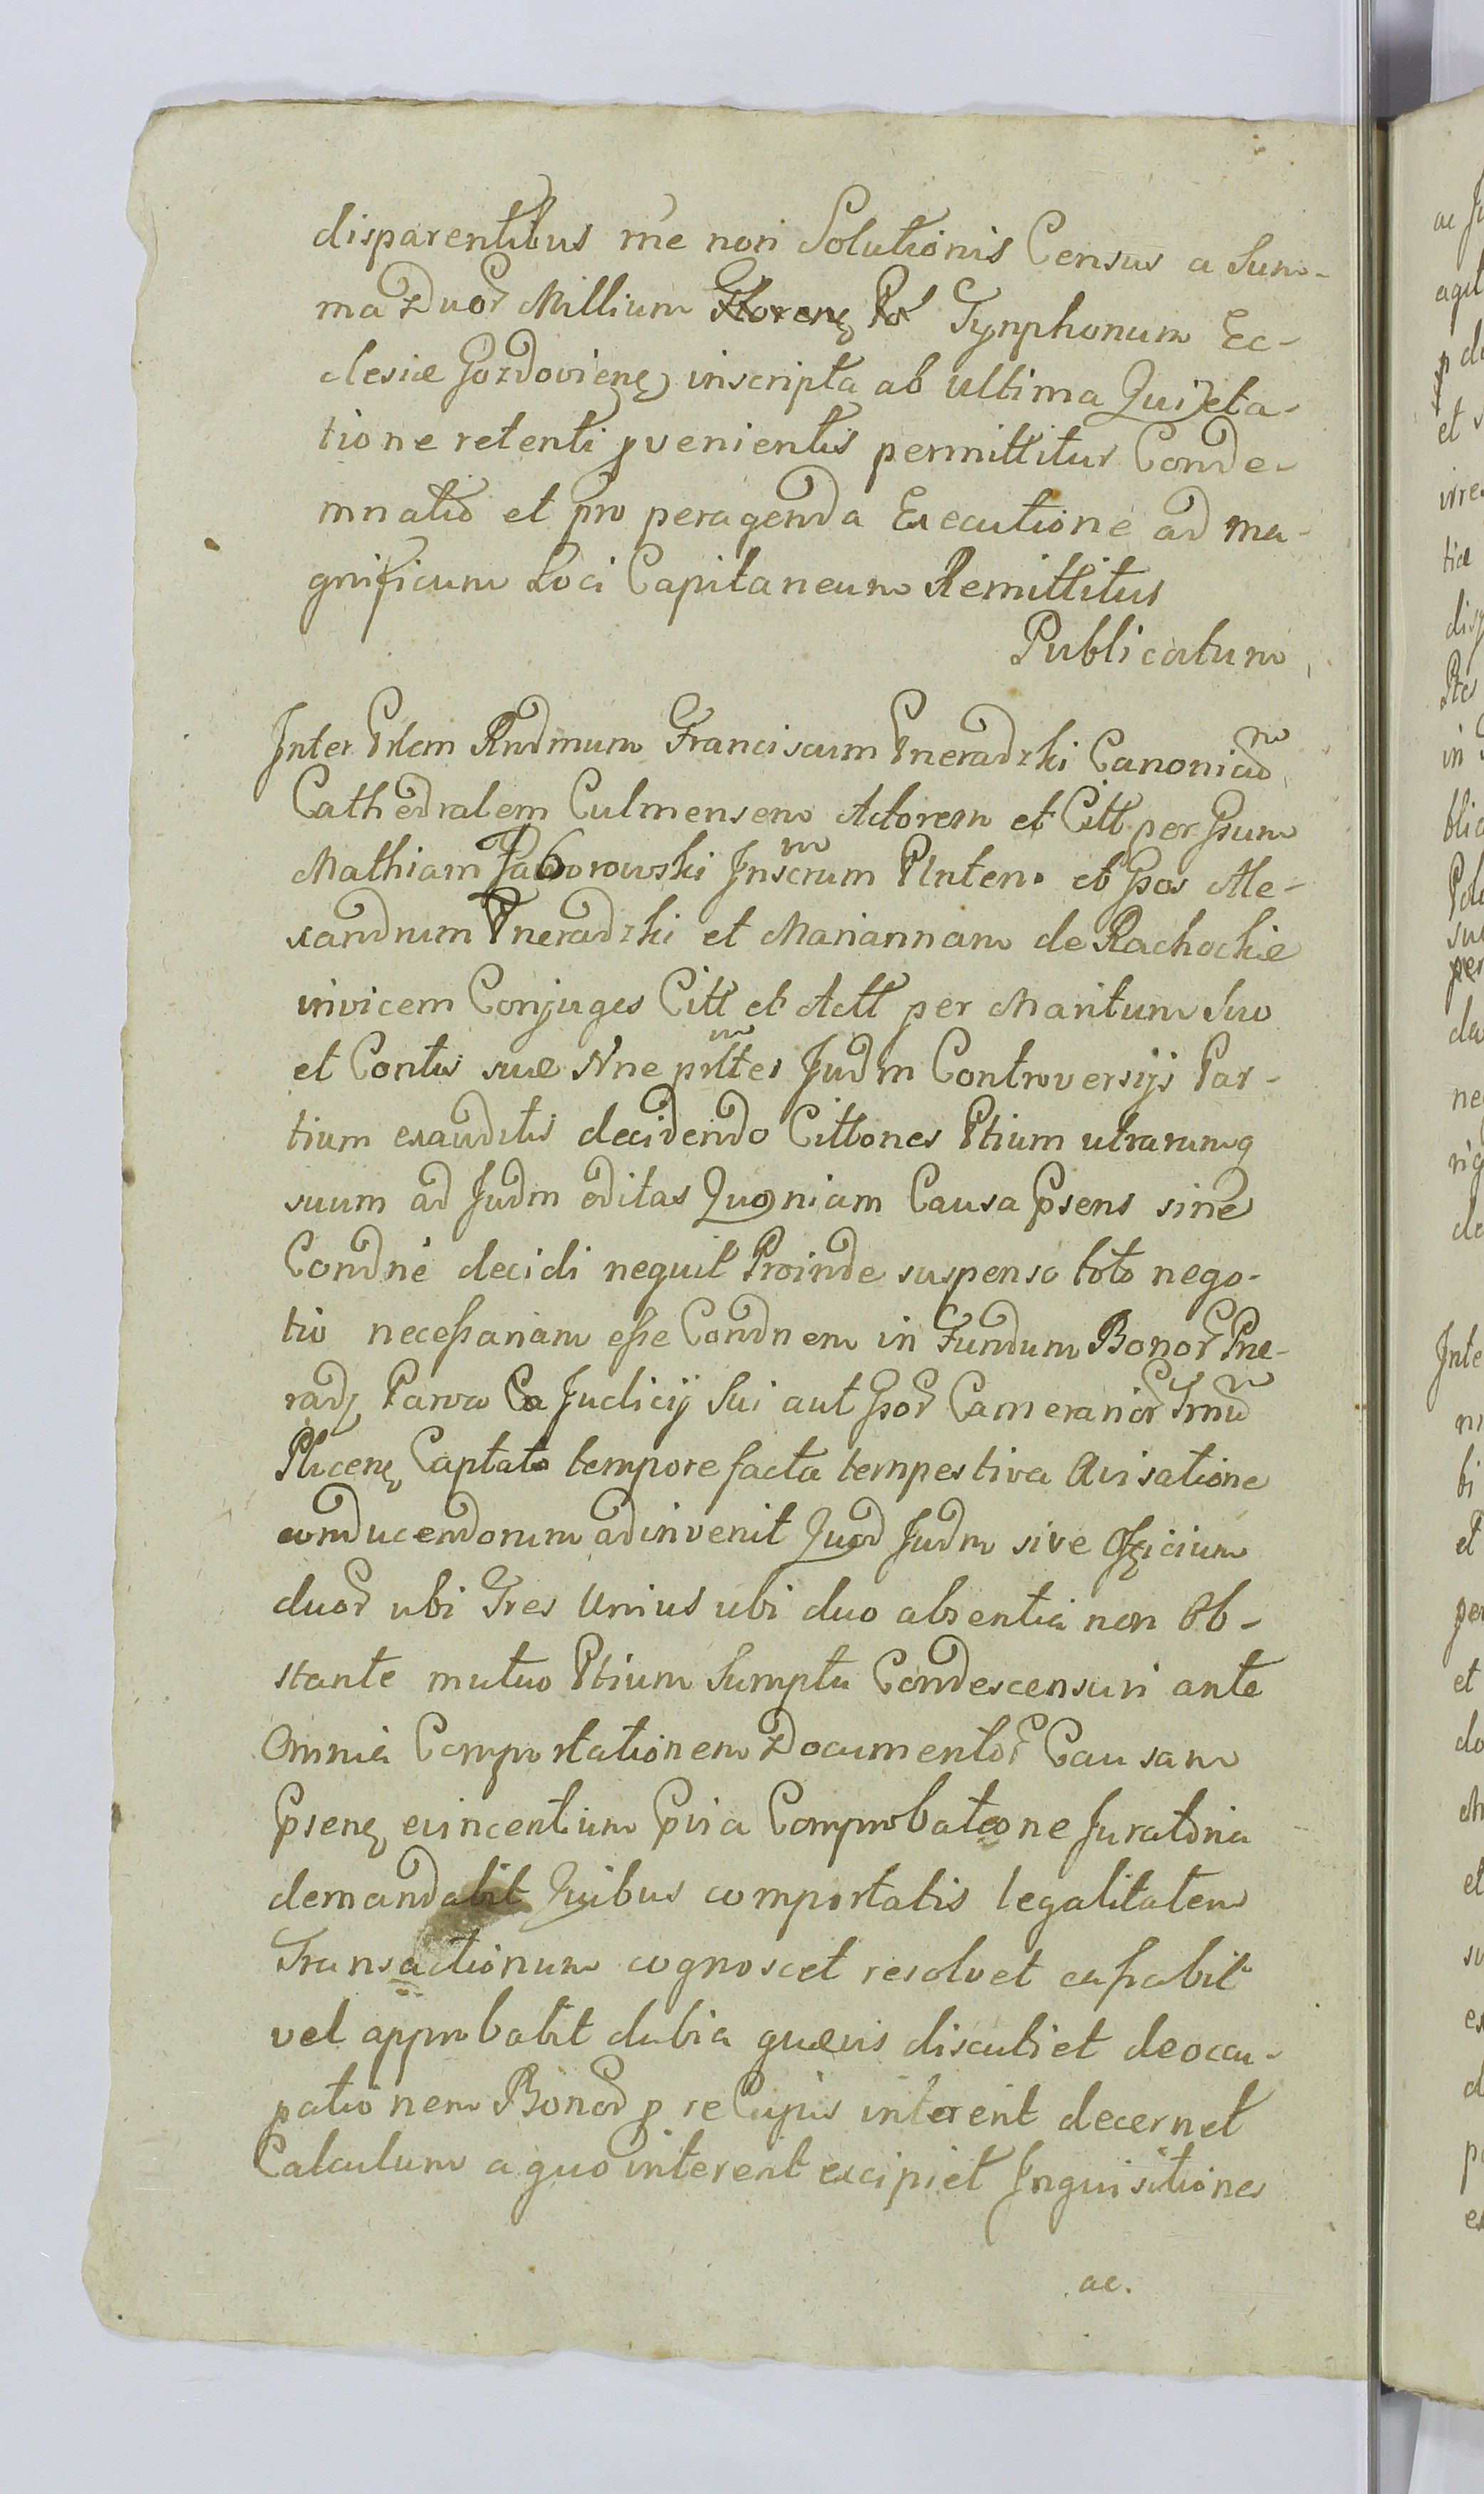 disparentibus rne non Solutionis Census a Sum-
ma Duor Millium Florenƺ Pol Tynphonum Ec-
clesiæ Gozdovienƺ inscripta ab ultima Quieta-
tione retenti pvenientis permittitur Conde-
mnatio et pro peragenda Executione ad ma-
gnificum Loci Capitaneum Remittitur
Publicatum
Inter Prlem Rndmum Franciscum Pneradzki Canonicum
Cathedralem Culmensem Actorem et Citt per Gsum
Mathiam Jaworowski Inscrum Plnten. et Gsos Ale-
xandrum Pneradzki et Mariannam de Rachockie
invicem Conjuges Citt et Actt per Maritum Suo
et Contis suæ Nne pltter Judm Controversijs Par-
tium exauditis decidendo Cittones Ptium utrarumq
suum ad Judm editas Quoniam Causa Psens sine
Condne decidi nequit Proinde suspenso toto nego-
tio necessariam esse Condnem in Fundum Bonor Pne-
radƺ Parva Ca Judicij Sui aut Gsor Camerarior Trrum
Plicenƺ Captato tempore facta tempestiva Avisatione
conducendorum adinvenit Quod Judm sive Officium
duor ubi Tres Unius ubi duo absentia non Ob-
stante mutuo Ptium Sumptu Condescensuri ante
Omnia Comportationem Documentor Causam
Psenƺ evincentium Pvia Comprobatione Juratoria
demandabit Quibus comportatis legalitatem
Transactionum cognoscet resolvet cassabit
vel approbabit dubia quævis discutiet deoccu-
pationem Bonor p re Cujus intererit decernet
Calculum a quo intererit excipiet Inquisitiones
ac.